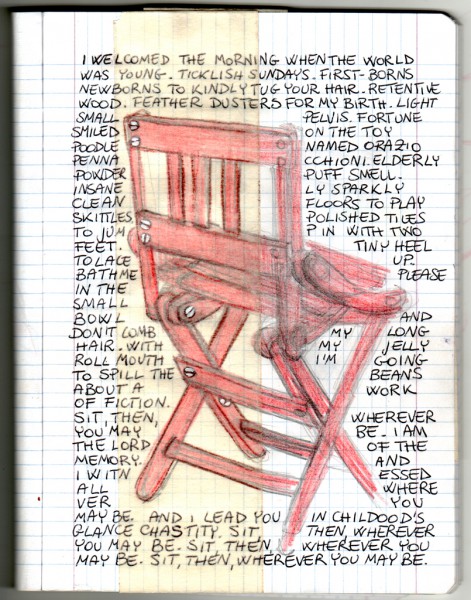 I WELCOMED THE MORNING WHEN THE WORLD
WAS YOUNG. TICKLISH SUNDAYS. FIRST-BORNS
NEWBORNS TO KINDLY TUG YOUR HAIR. RETENTIVE
WOOD. FEATHER DUSTERS FOR MY BIRTH. LIGHT
SMALL PELVIS. FORTUNE
SMILED ON THE TOY
POODLE NAMED ORAZIO
PENNA CCHIONI. ELDERLY
POWDER PUFF SMELL.
INSANE LY SPARKLY
CLEAN FLOORS TO PLAY
SKITTLES POLISHED TILES
TO JUM P IN WITH TWO
FEET. TINY HEEL
TO LACE UP.
BATHE ME PLEASE
IN THE
SMALL
BOWL AND
DON'T COMB MY LONG
HAIR. WITH MY JELLY
ROLL MOUTH I'M GOING
TO SPILL THE BEANS
ABOUT A WORK
OF FICTION.
SIT, THEN, WHEREVER
YOU MAY BE. I AM
THE LORD OF THE
MEMORY. AND
I WITN ESSED
ALL WHERE
VER YOU
MAY BE. AND I LEAD YOU IN CHILDOOD'S
GLANCE CHASTITY. SIT THEN, WHEREVER
YOU MAY BE. SIT THEN, WHEREVER YOU
MAY BE. SIT, THEN, WHEREVER YOU MAY BE.